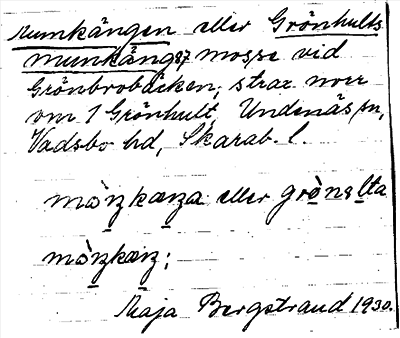 Munkängen eller Grönhults
munkäng, 87 mosse vid
Grönbrobäcken, strax norr
om 1 Grönhult, Undenäs sn,
Vadsbo hd, Skarab. l.
eller
Maja Bergstrand 1930.